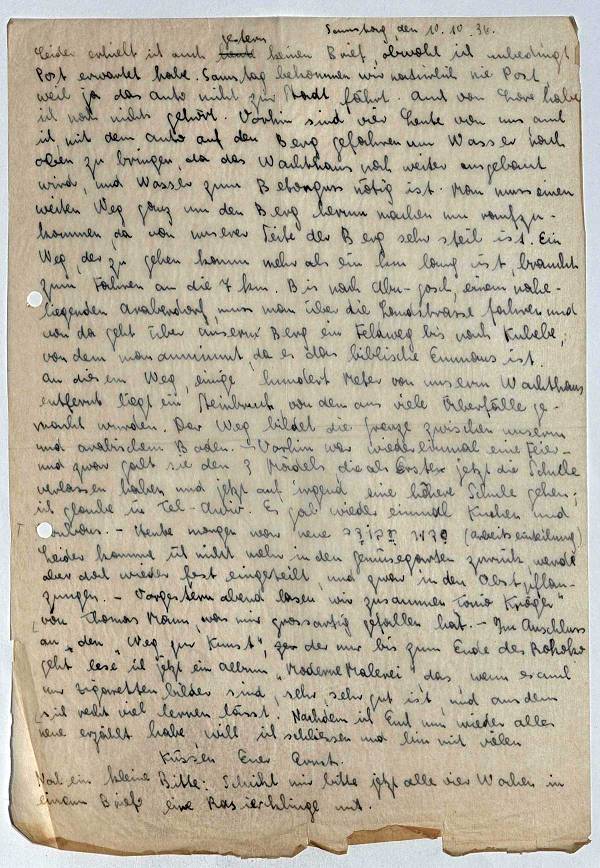 Samstag, den 10.10.36.
gestern
Leider erhielt ich auch heute keinen Brief, obwohl ich unbedingt
Post erwartet habe. Samstag bekommen wir natürlich nie Post,
weil ja das Auto nicht zur Stadt fährt. Auch von Lore habe
ich noch nichts gehört. Vorhin sind vier Leute von uns, auch
ich, mit dem Auto auf den Berg gefahren um Wasser nach
oben zu bringen, da das Wachthaus noch weiter ausgebaut
wird, und Wasser zum Betonguss nötig ist. Man muss einen
weiten Weg ganz um den Berg herum machen um raufzu-
kommen, da von unserer Seite der Berg sehr steil ist. Ein
Weg, der zu gehen kaum mehr als ein km lang ist, braucht
zum Fahren an die 7 km. Bis nach Abu-gosch, einem nahe-
liegenden Araberdorf muss man über die Landstrasse fahren und
von da geht über unseren Berg ein Feldweg bis nach Kubebe,
von dem man annimmt, da es das biblische Emmaus ist.
An diesem Weg, einige hundert Meter von unserm Wachthaus
entfernt liegt ein Steinbruch, von dem aus viele Überfälle ge-
macht wurden. Der Weg bildet die Grenze zwischen unserm
und arabischem Boden. – Vorhin war wiedereinmal eine Feier –
und zwar galt sie den 3 Mädels die als Erste jetzt die Schule
verlassen haben und jetzt auf irgend eine höhere Schule gehen;
ich glaube in Tel-Aviv. Es gab wieder einmal Kuchen und
– Heute morgen war neue (Arbeitseinteilung)
Leider komme ich nicht mehr in den Gemüsegarten zurück, werde
aber dort wieder fest eingeteilt, und zwar in den Obstpflan-
zungen. – Vorgestern abend lasen wir zusammen „Tonio Kröger“
von Thomas Mann, was mir grossartig gefallen hat. – Im Anschluss
an „den „Weg zur Kunst“, der nur bis zum Ende des Rokoko
geht lese ich jetzt ein Album „Moderne Malerei“ das, wenn es auch
nur Zigarettenbilder sind, sehr, sehr gut ist, und aus dem
sich recht viel lernen lässt. Nachdem ich Euch nun wieder alles
neue erzählt habe will ich schliessen und bin mit vielen
Küssen Euer Ernst.
Noch ein kleine Bitte: Schickt mir bitte jetzt alle vier Wochen in
einem Brief eine Rasierklinge mit.